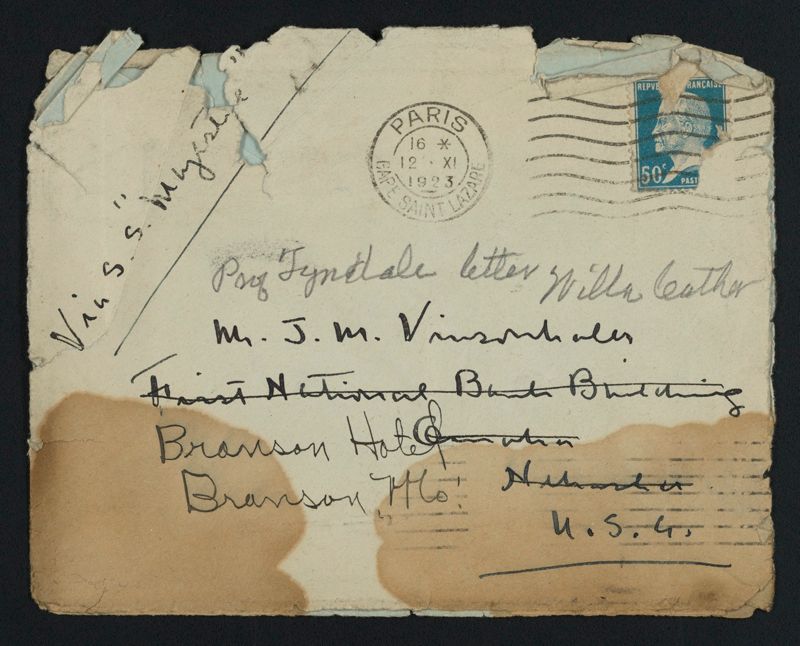 Via S. S. "Majestic"
PARIS
16 *
12 · XI
1923
GARE SAINT LAZARE
REPVB FRANÇAISE
50c
PAST
Tyndale letter Willa Cather
Mr. J. M. Vinsonhaler
First National Bank Building
Omaha
Branson Hotel
Branson, Mo.
Nebraska
U. S. A.